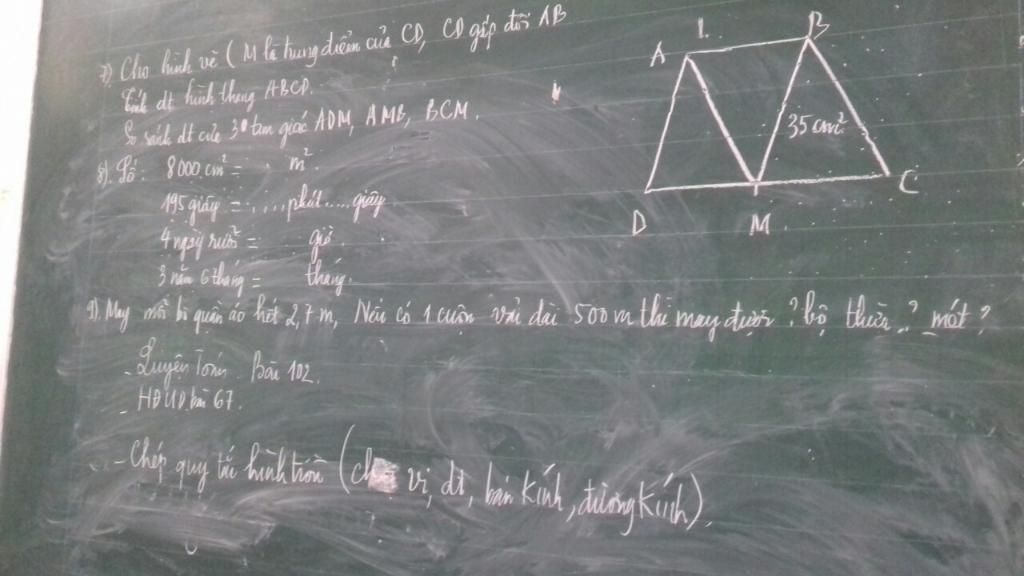 7) Cho hình vẽ ( M là trung điểm của CD, CD gấp đôi AB
Tính dt hình thang ABCD.
So sánh dt của 3 tam giác ADM, AMB, BCM.
8). Số: 8000 cm² = . m²
195 giây = ..... phút ..... giây
4 ngày rưỡi = giờ.
3 năm 6 tháng = tháng.
9). May mỗi bộ quần áo hết 2,7 m, Nếu có 1 cuộn vải dài 500 m thì may được ? bộ thừa ? mét ?
- Luyện Toán Bài 102.
- HĐƯD bài 67.
- Chép quy tắc hình tròn ( vi, dt, bán kính, đường kính).
A B
35 cm²
D M C